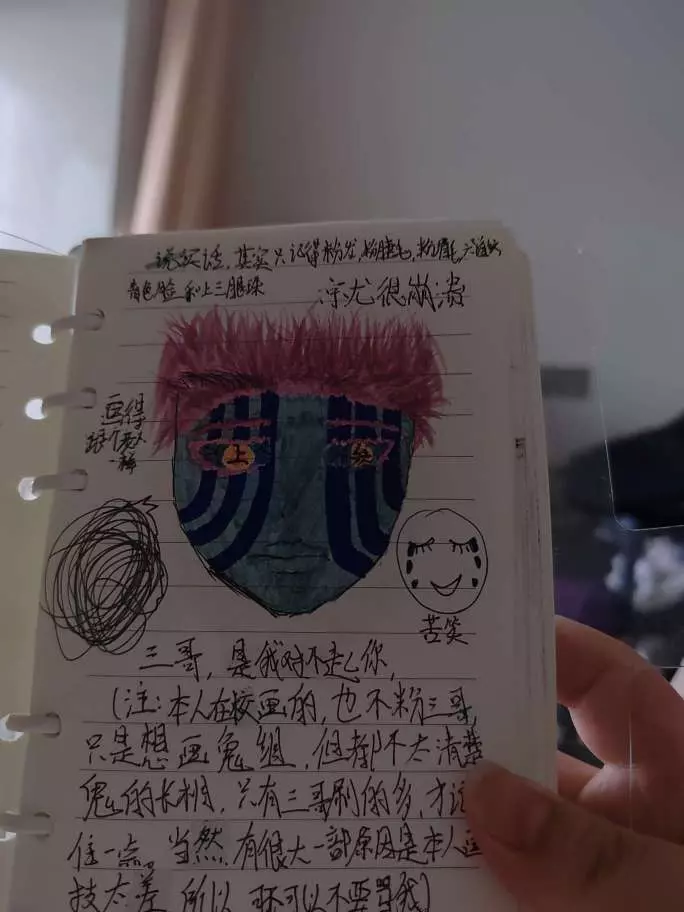 说实话,其实只记得粉发,粉睫毛,粉眉毛,
青色脸和上三眼珠
谆尤很崩溃
画得
跟个
一样
上
叁
苦笑
三哥,是我对不起你,
(注:本人在校画的,也不粉三哥,
只是想画鬼组,但都不太清楚
鬼的长相,只有三哥刷的多,才记
住一点。当然,有很大一部原因是本人画
技太差,所以 可以不要骂我)